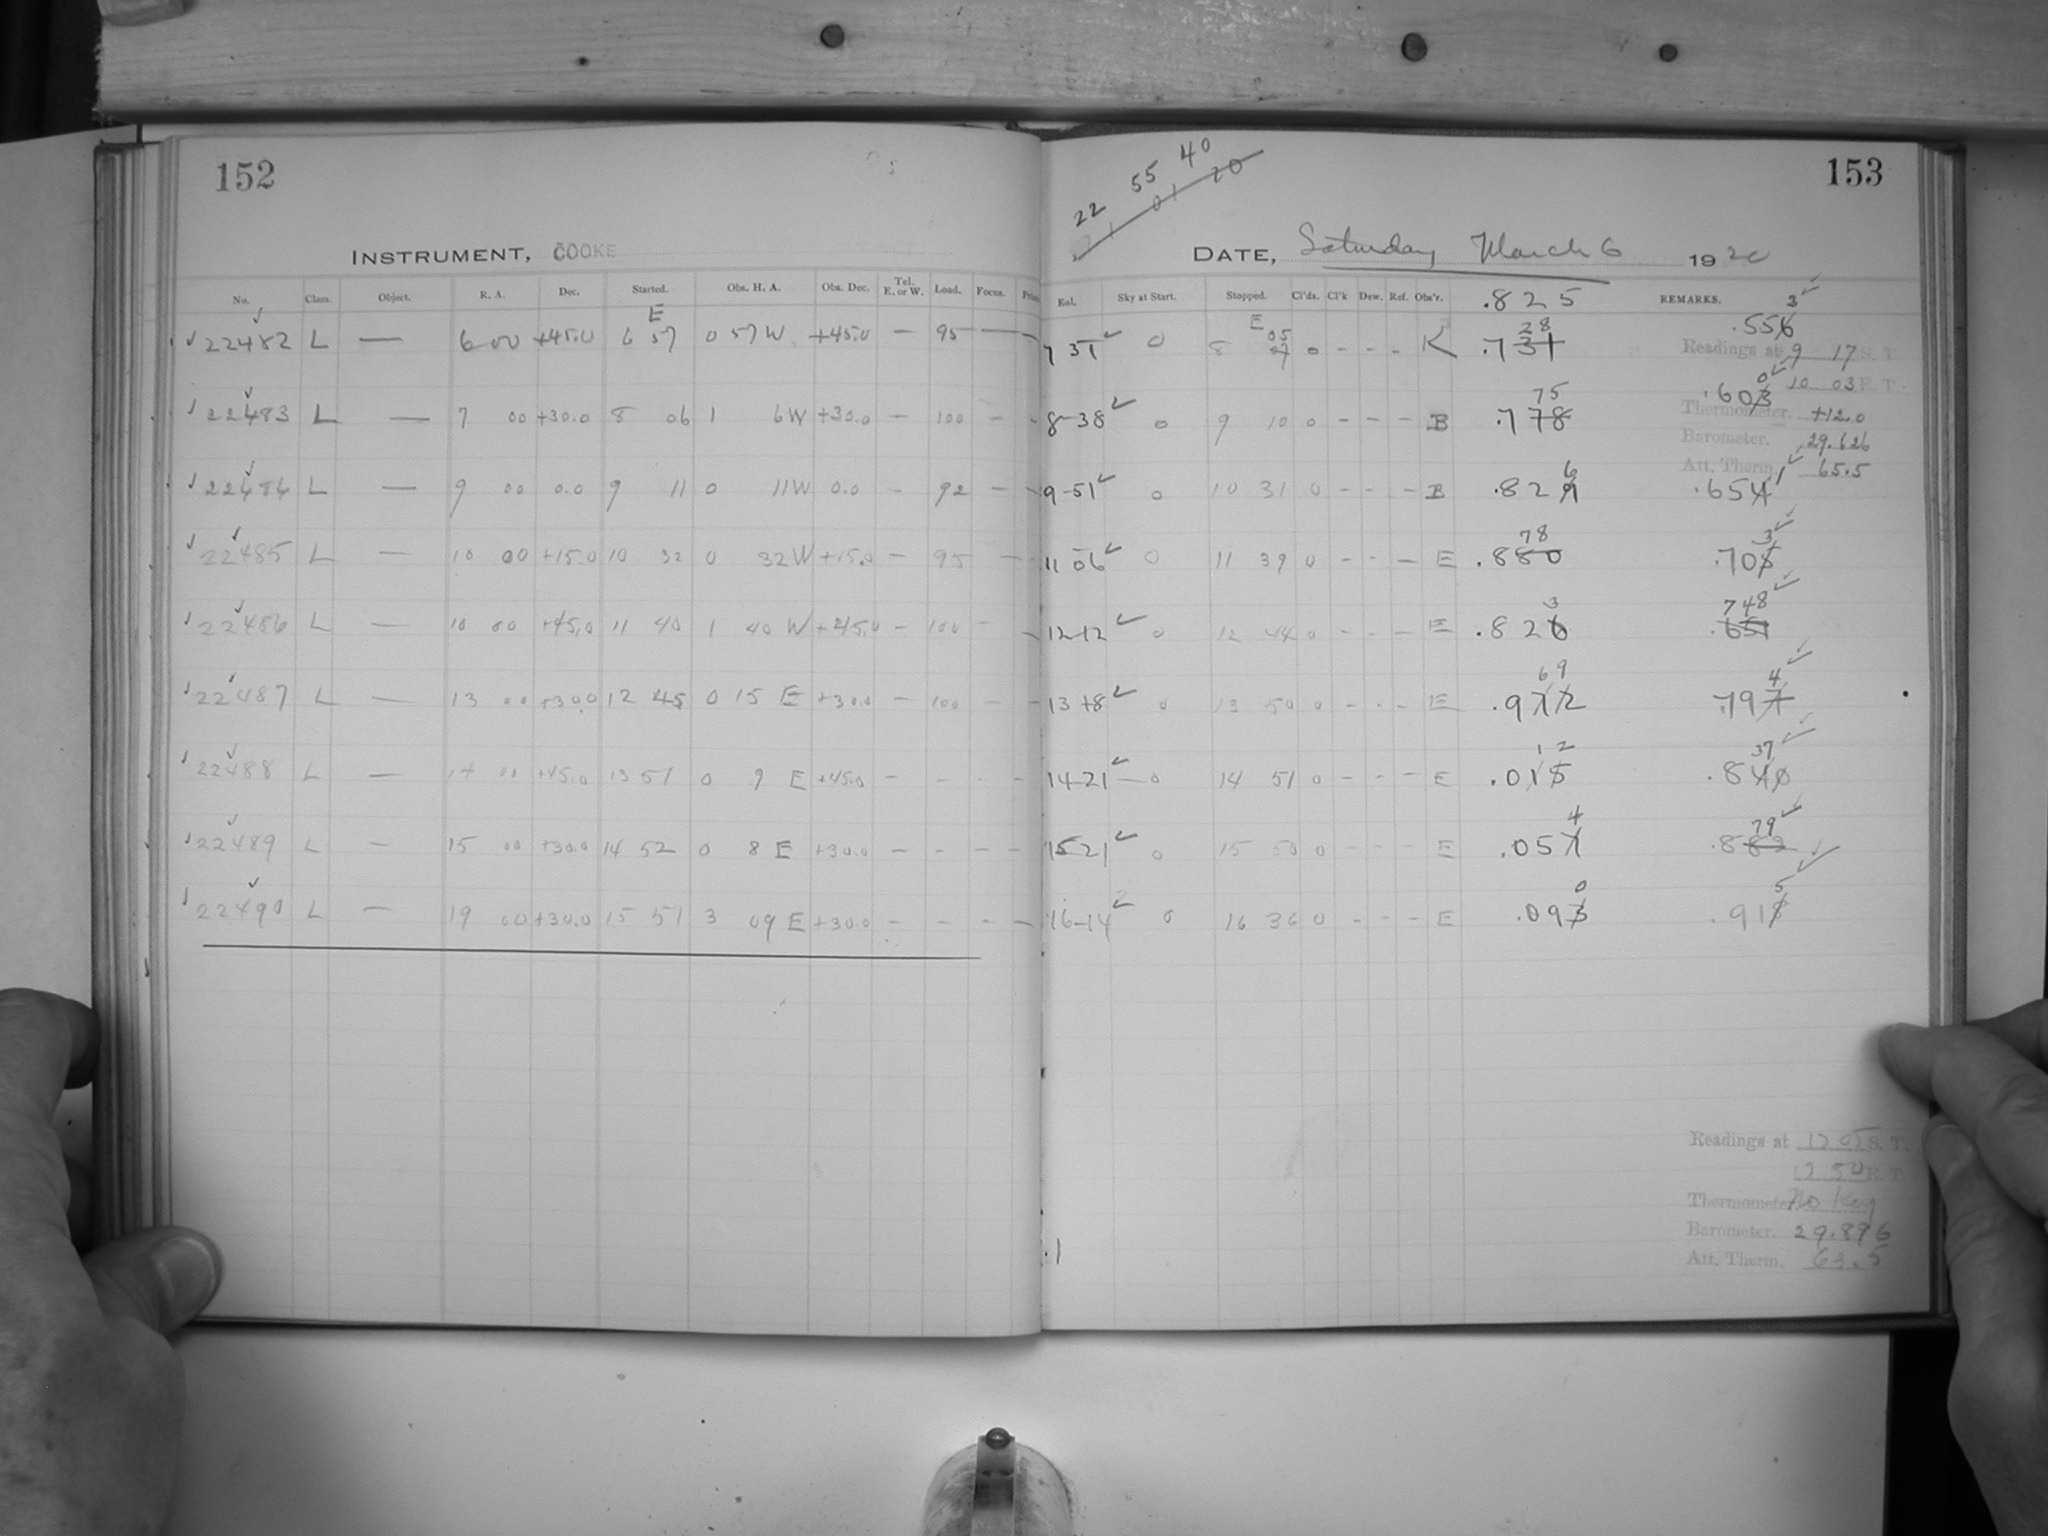 152
153
22 55 40
21 01 20
INSTRUMENT, COOKE
DATE, Saturday March 6 1920
No. Class. Object. R. A. Dec. Started. Obs. H. A. Obs. Dec. Tel. E. or W. Load. Focus. Eal. Sky at Start. Stopped. Cl'ds. Cl'k Dew. Ref. Obs'r. .825 REMARKS.
22482 L — 6 00 +45.0 E 6 57 0 57 W +45.0 — 95 — 7 31 0 E 8 05 0 - - - K .731 28 .556 3
Readings at 9 17 S. T.
10 03 E. T.
22483 L — 7 00 +30.0 8 06 1 6W +30.0 — 100 — 8-38 0 9 10 0 - - - B .778 75 .603 0
Thermometer. +12.0
Barometer. 29.626
Att. Therm. 65.5
22484 L — 9 00 0.0 9 11 0 11W 0.0 — 92 — 9-51 0 10 31 0 - - - B .829 6 .654 1
22485 L — 10 00 +15.0 10 32 0 32W +15.0 — 95 — 11 06 0 11 39 0 - - - E .880 78 .705 3
22486 L — 10 00 +45.0 11 40 1 40 W +45.0 — 100 - 12-12 0 12 44 0 - - - E .826 3 .651 748
22487 L — 13 00 +30.0 12 45 0 15 E +30.0 — 100 - 13 18 0 13 50 0 - - - E .972 69 .797 4
22488 L — 14 00 +45.0 13 51 0 9 E +45.0 — - - 14-21 0 14 51 0 - - - E .015 12 .840 37
22489 L — 15 00 +30.0 14 52 0 8 E +30.0 — - - - 15 21 0 15 50 0 - - - E .057 4 .882 79
22490 L — 19 00 +30.0 15 51 3 09 E +30.0 — - - - 16-14 0 16 36 0 - - - E .093 0 .918 5
Readings at 12 05 S. T.
12 50 E. T.
Thermometer. No Key
Barometer. 29.896
Att. Therm. 63.5